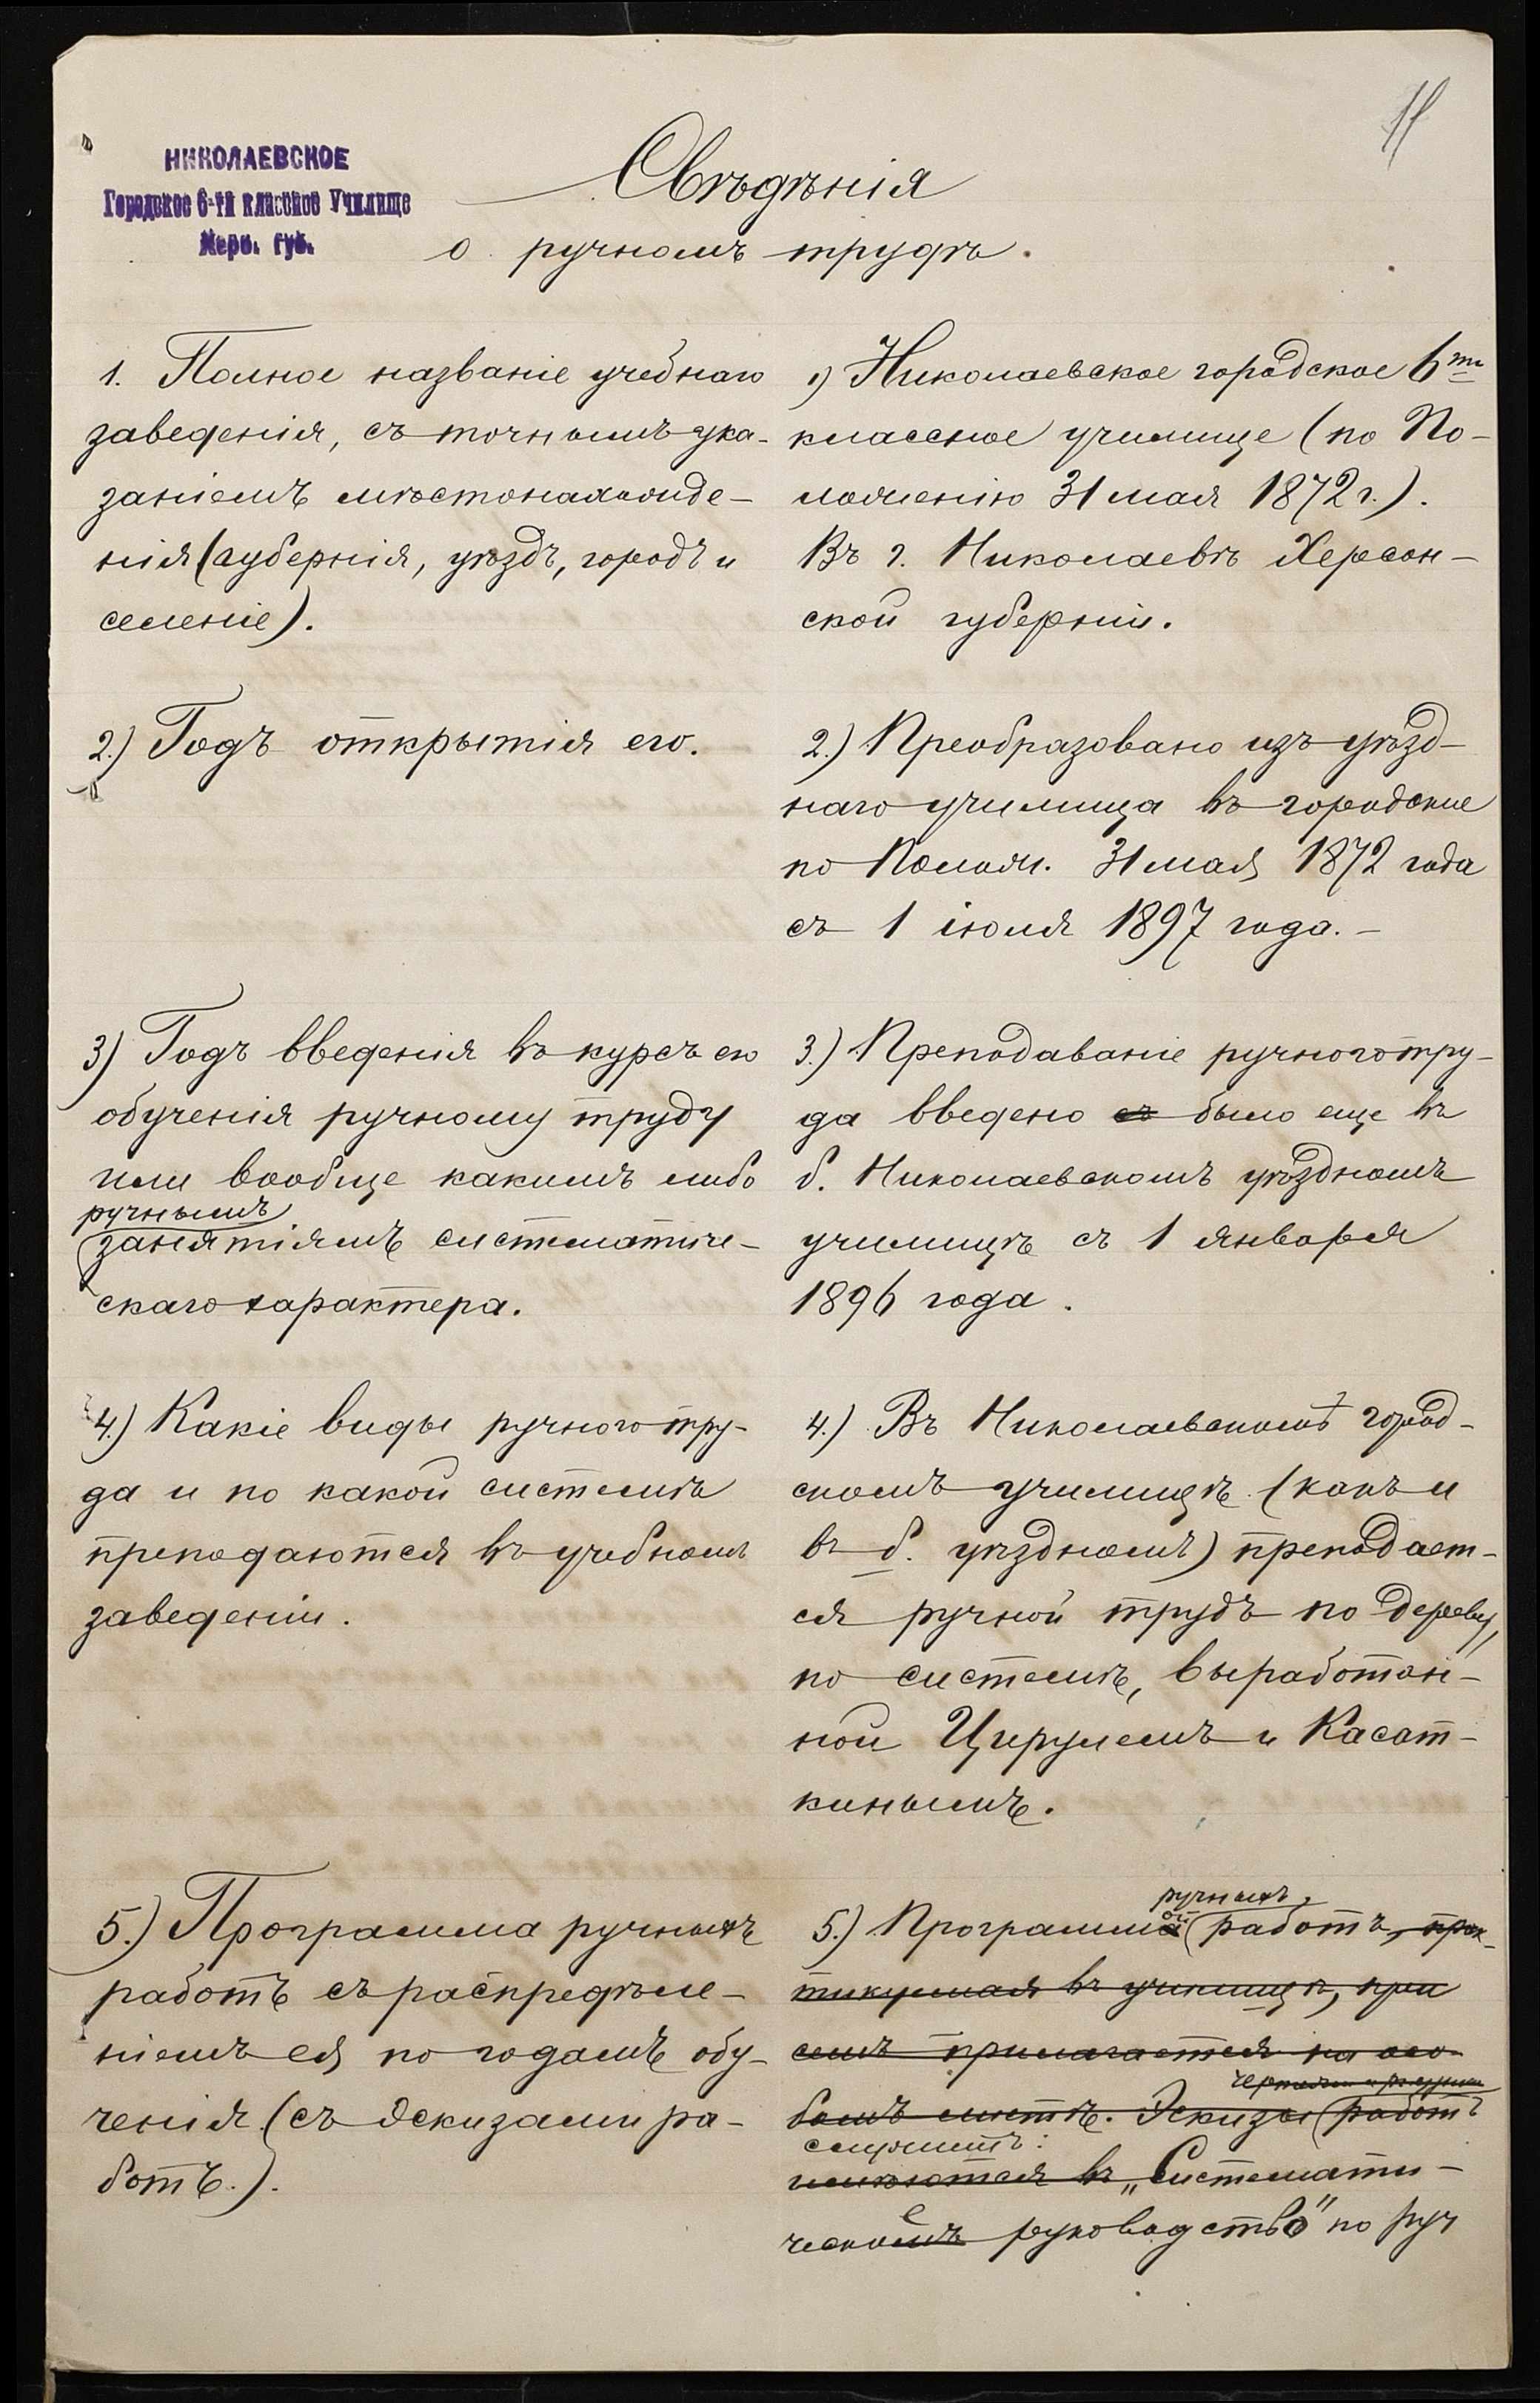 11
НИКОЛАЕВСКОЕ
Городское 6-ти классное Училище
Херс. губ.
Свѣдѣнія
о ручномъ трудѣ.
1. Полное названіе учебнаго
заведенія, съ точнымъ ука-
заніемъ мѣстонахожде-
нія (губернія, уѣздъ, городъ и
селеніе).
1) Николаевское городское 6ти
классное училище (по По-
ложенію 31 мая 1872 г.).
Въ г. Николаевѣ Херсон-
ской губерніи.
2.) Годъ открытія его.
2.) Преобразовано изъ уѣзд-
наго училища въ городское
по Полож. 31 мая 1872 года
съ 1 іюля 1897 года. -
3) Годъ введенія въ курсъ его
обученія ручному труду
или вообще какимъ либо
ручнымъ
занятіямъ систематиче-
скаго характера.
3.) Преподаваніе ручного тру-
да введено съ было еще въ
б. Николаевскомъ уѣздномъ
училищѣ съ 1 января
1896 года.
4.) Какіе виды ручного тру-
да и по какой системѣ
преподаются въ учебномъ
заведеніи.
4.) Въ Николаевскомъ город-
скомъ училищѣ (какъ и
въ б. уѣздномъ) преподает-
ся ручной трудъ по дереву,
по системѣ, выработан-
ной Цирулемъ и Касат-
кинымъ.
5.) Программа ручныхъ
работъ съ распредѣле-
ніемъ ея по годамъ обу-
ченія (съ эскизами ра-
ботъ.).
ручныхъ
5.) Программой работъ, прак-
тикуемая въ училищѣ, при
семъ прилагается на осо-
чертежи и рисунки
бомъ листѣ. Эскизы работъ
служитъ:
имѣются въ „Системати-
ческомъ руководство" по руч